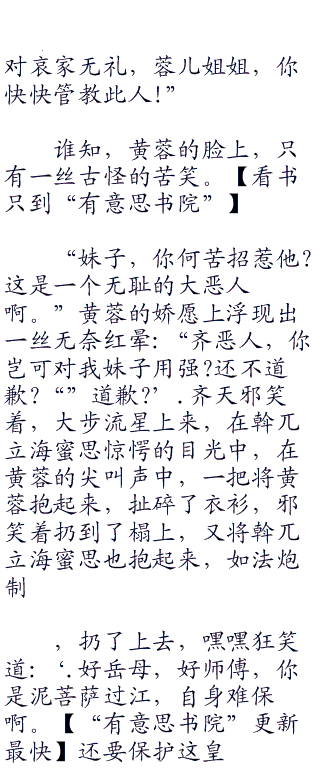 对哀家无礼，蓉儿姐姐，你
快快管教此人!”
谁知，黄蓉的脸上，只
有一丝古怪的苦笑。【看书
只到“有意思书院”】
“妹子，你何苦招惹他?
这是一个无耻的大恶人
啊。”黄蓉的娇愿上浮现出
一丝无奈红晕:“齐恶人，你
岂可对我妹子用强?还不道
歉?“”道歉?’.齐天邪笑
着，大步流星上来，在斡兀
立海蜜思惊愕的目光中，在
黄蓉的尖叫声中，一把将黄
蓉抱起来，扯碎了衣衫，邪
笑着扔到了榻上，又将斡兀
立海蜜思也抱起来，如法炮
制
，扔了上去，嘿嘿狂笑
道:‘.好岳母，好师傅，你
是泥菩萨过江，自身难保
啊。【“有意思书院”更新
最快】还要保护这皇